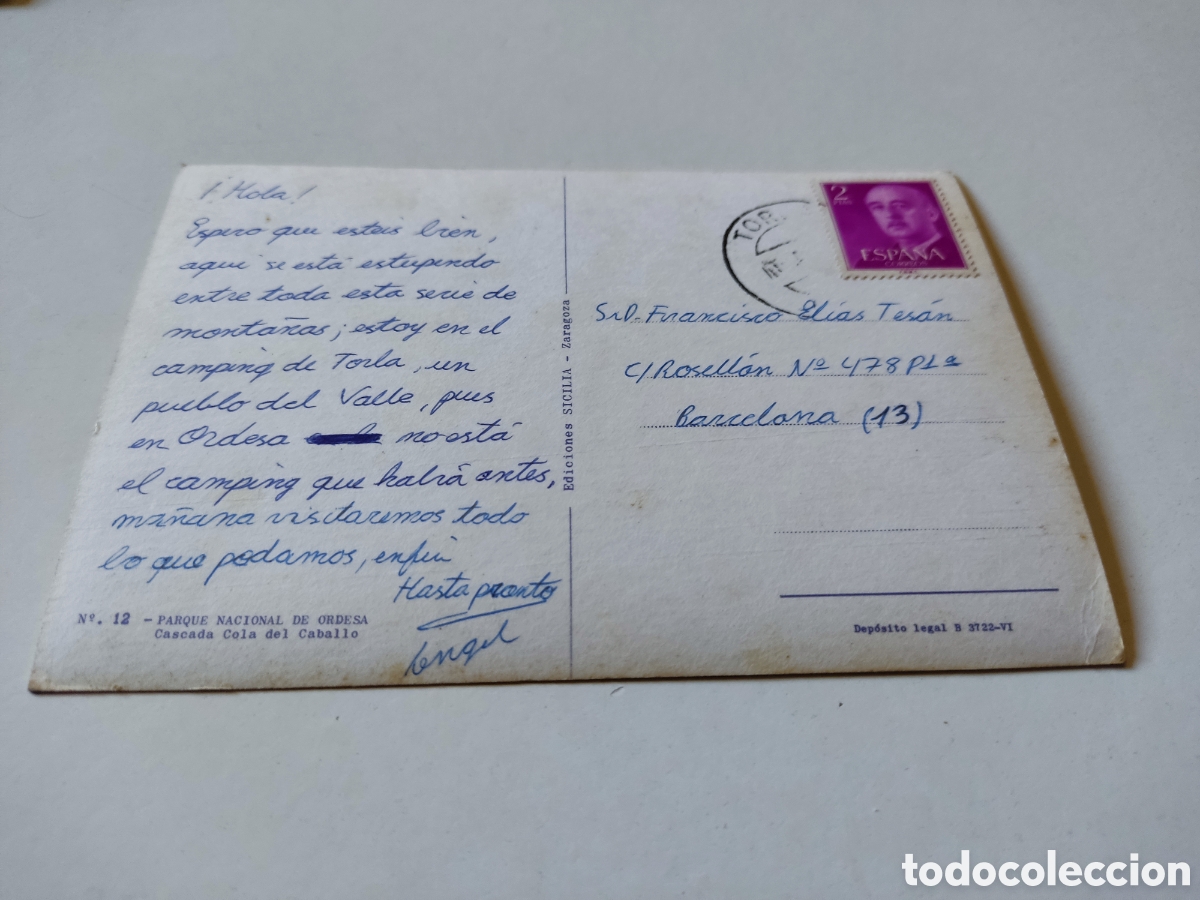 ¡Hola!
Espero que estéis bien,
aquí se está estupendo
entre toda esta serie de
montañas; estoy en el
camping de Torla, un
pueblo del Valle, pues
en Ordesa no está
el camping que había antes,
mañana visitaremos todo
lo que podamos, enfin
Hasta pronto
Angel
Nº. 12 - PARQUE NACIONAL DE ORDESA
Cascada Cola del Caballo
Ediciones SICILIA - Zaragoza
TOR
2
PTAS
ESPAÑA
CORREOS
SrD. Francisco Elías Tesán
C/ Rosellón Nº 478 P1ª
Barcelona (13)
Depósito legal B 3722-VI
todocoleccion